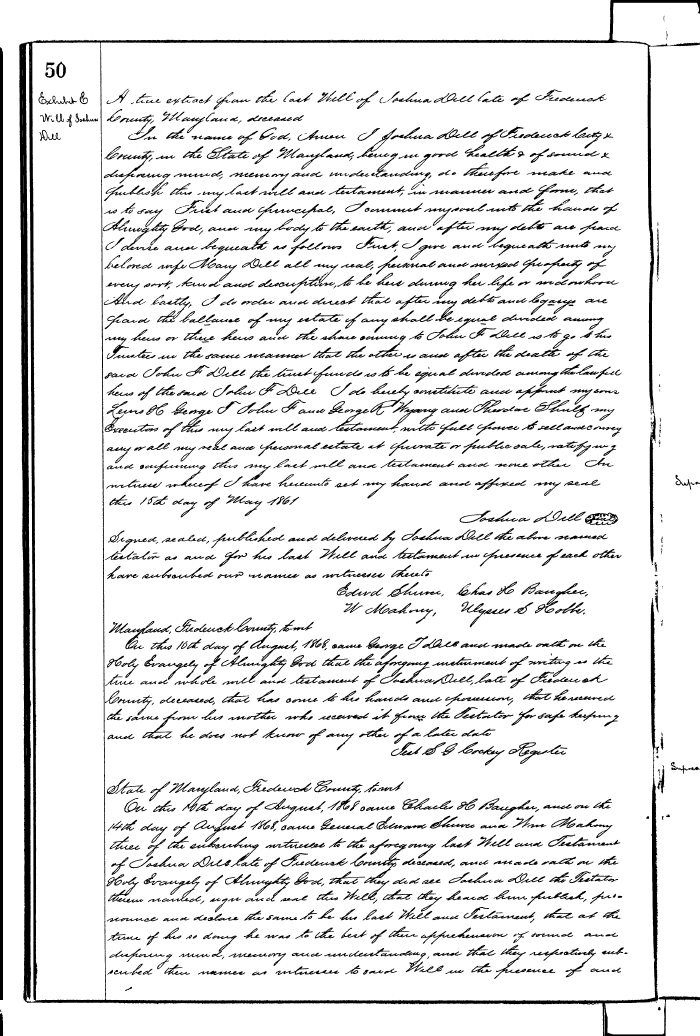 50
Exhibit E
Will of Joshua
Dill
A true extract from the last Will of Joshua Dill late of Frederick
County, Maryland, deceased
In the name of God, Amen I Joshua Dill of Frederick City &
County, in the State of Maryland, being in good health & of sound &
disposing mind, memory and understanding, do therefore make and
publish this my last will and testament, in manner and form, that
is to say First and principal, I commit my soul into the hands of
Almighty God, and my body to the earth, and after my debts are paid
I devise and bequeath as follows First, I give and bequeath unto my
beloved wife Mary Dill all my real, personal and mixed property of
every sort, kind and description, to be hers during her life or widowhood
And lastly, I do order and direct that after my debts and legacys are
paid the ballance of my estate if any shall be equal divided among
my heirs or there heirs and the share coming to John F Dill is to go to his
Trustee in the same manner that the other is and after the death of the
said John F Dill the trust funds is to be equal divided among the lawful
heirs of the said John F Dill I do hereby constitute and appoint my sons
Lewis H George T John F and George R Wyong and Theodore Shultz my
Executors of this my last will and testament, with full power to sell and convey
any or all my real and personal estate at private or public sale, ratifying
and confirming this my last will and testament and none other In
witness whereof I have hereunto set my hand and affixed my seal
this 15th day of May 1861
Joshua Dill
Signed, sealed, published and delivered by Joshua Dill the above named
testator as and for his last Will and testament in presence of each other
have subscribed our names as witnesses thereto
Edwd Shriver, Chas H Baugher,
W Mahony, Ulysses S Hobbs.
Maryland, Frederick County, to wit
On this 10th day of August, 1868, came George T Dill and made oath on the
Holy Evangely of Almighty God that the aforegoing instrument of writing is the
true and whole will and testament of Joshua Dill, late of Frederick
County, deceased, that has come to his hands and possession, that he received
the same from his mother who received it from the Testator for safe keeping
and that he does not know of any other of a later date
Test S G Cockey Register
State of Maryland, Frederick County, to wit
On this day of August, 1868 came Charles H Baugher, and on the
14th day of August 1868, came General Edward Shriver and Wm Mahony
three of the subscribing witnesses to the aforegoing last Will and Testament
of Joshua Dill, late of Frederick County, deceased, and made oath on the
Holy Evangely of Almighty God, that they did see Joshua Dill the Testator
therein named, sign and seal this Will, that they heard him publish, pro-
nounce and declare the same to be his last Will and Testament, that at the
time of his so doing he was to the best of their apprehension of sound and
disposing mind, memory and understanding, and that they respectively sub-
scribed their names as witnesses to said Will in the presence of and